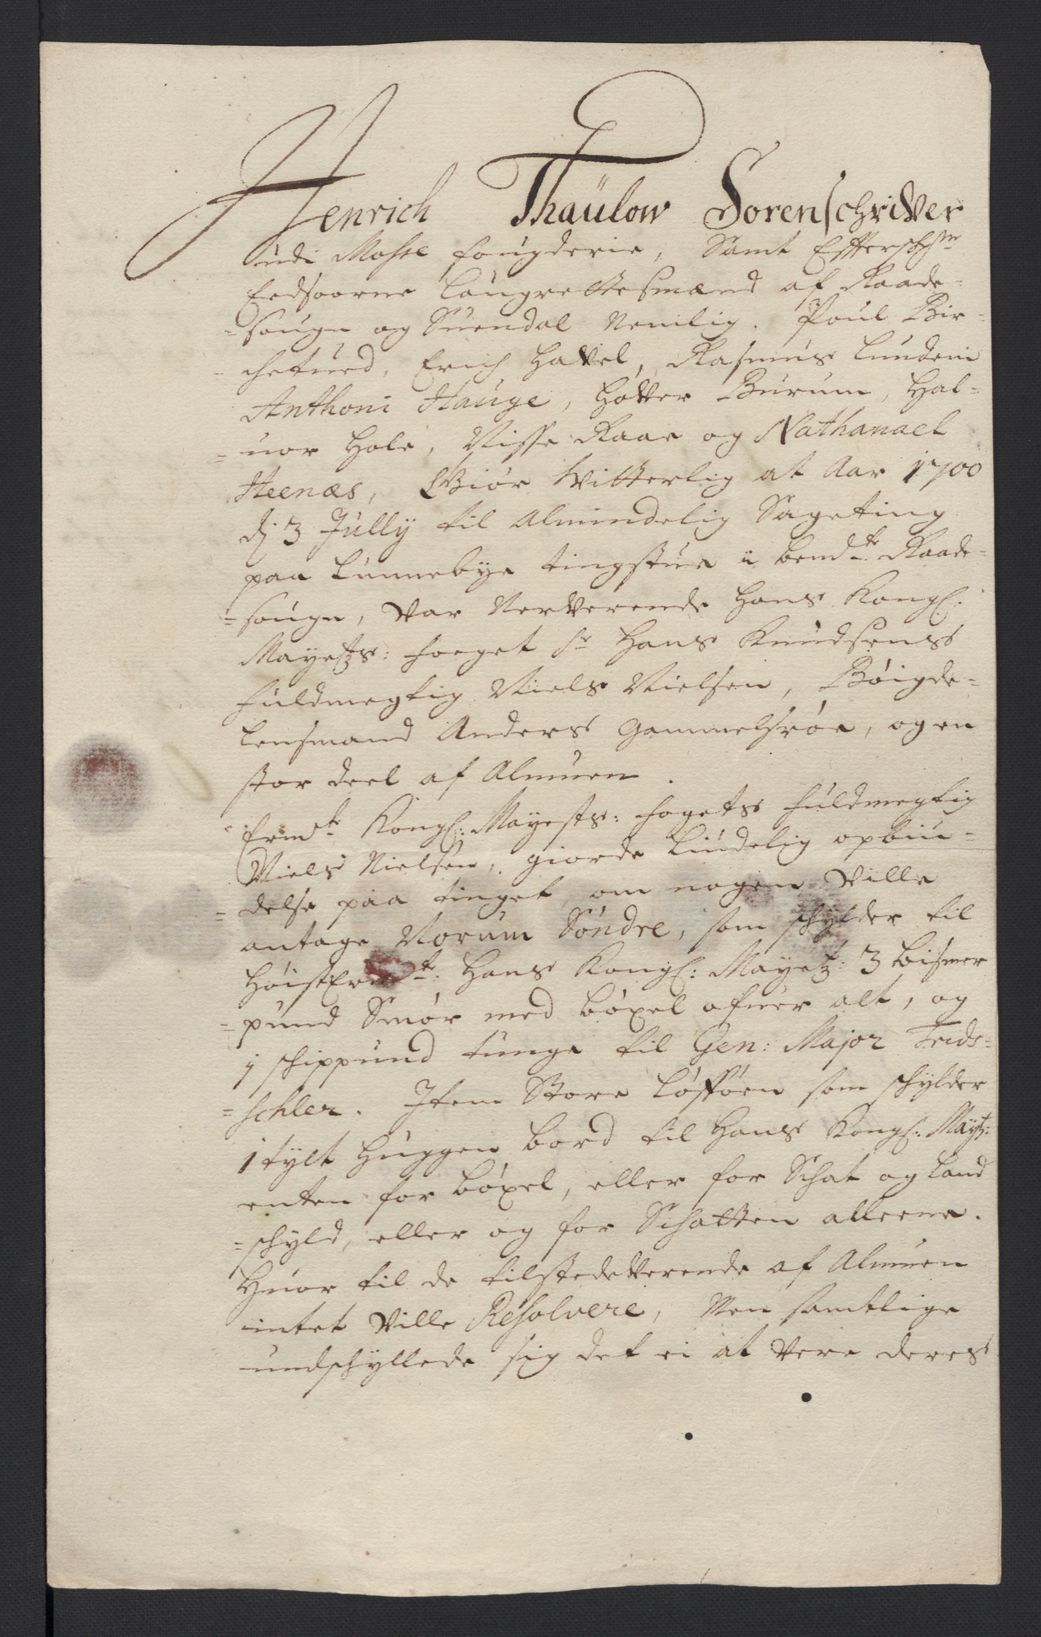 Henrich Thaulow Sorenschriver
udi Mosse fougderie, Samt Effterschr:ne
Eedsoorne Laugrettesmænd af Raade-
-sougn og Suendal Nemlig. Poul Bir-
-chetued, Erich Havel, Rasmus Lundem
Anthoni Hauge, Hover Burum, Hal-
-uor Hole, Nisse Raar og Nathanael
Heenæs, Giör Witterlig at Aar 1700
dj 3 Jully til Almindelig Sageting
paa Lunnebye tingstue i bend:te Raade-
-sougn, var Nerverende Hans Kongl:
Mayetzs: foeget Sr Hans Knudsens
fuldmegtig Niels Nielsen, Böigde-
Lensmand Anders Gammelsröe, og en
stor deel af Almuen.
Ermte Kongl: Mayests: fogets fuldmegtig
Niels Nielsen, giorde Liudelig opbiu-
-delse paa tinget om nogen ville
antage Norum Söndre, som schylder til
Höist Er te: Hans Kongl: Mayetz: 3 bismer
-pund Smör med böxel ofuer alt, og
1 schippund tunge til Gen: Major Trids-
-schler. Item Store Löfföen som schylder
1 tylt Huggen bord til Hans Kongl: Maytz:
enten for böxel, eller for Schat og Land
-schyld, eller og for Schatten alleene.
Huor til de tilstedeverende af Almuen
intet ville Resolvere, Men samtlige
undschyllede sig det ei at vere deres